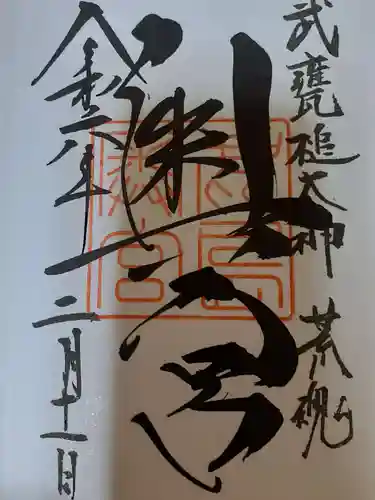 武甕槌大神 荒魂
奥宮
令和六年
二月十一日